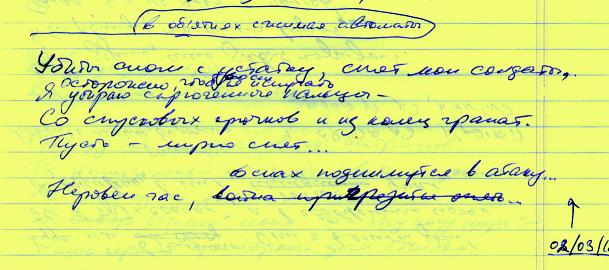 в объятиях сжимая автоматы
Убиты сном с устатку, спят мои солдаты,
осторожно, чтобы не
Я убираю скрюченные пальцы –
Со спусковых крючков и из колец гранат.
Пусть – мирно спят...
во снах поднимутся в атаку...
Неровен час, война приг опять...
02/03/